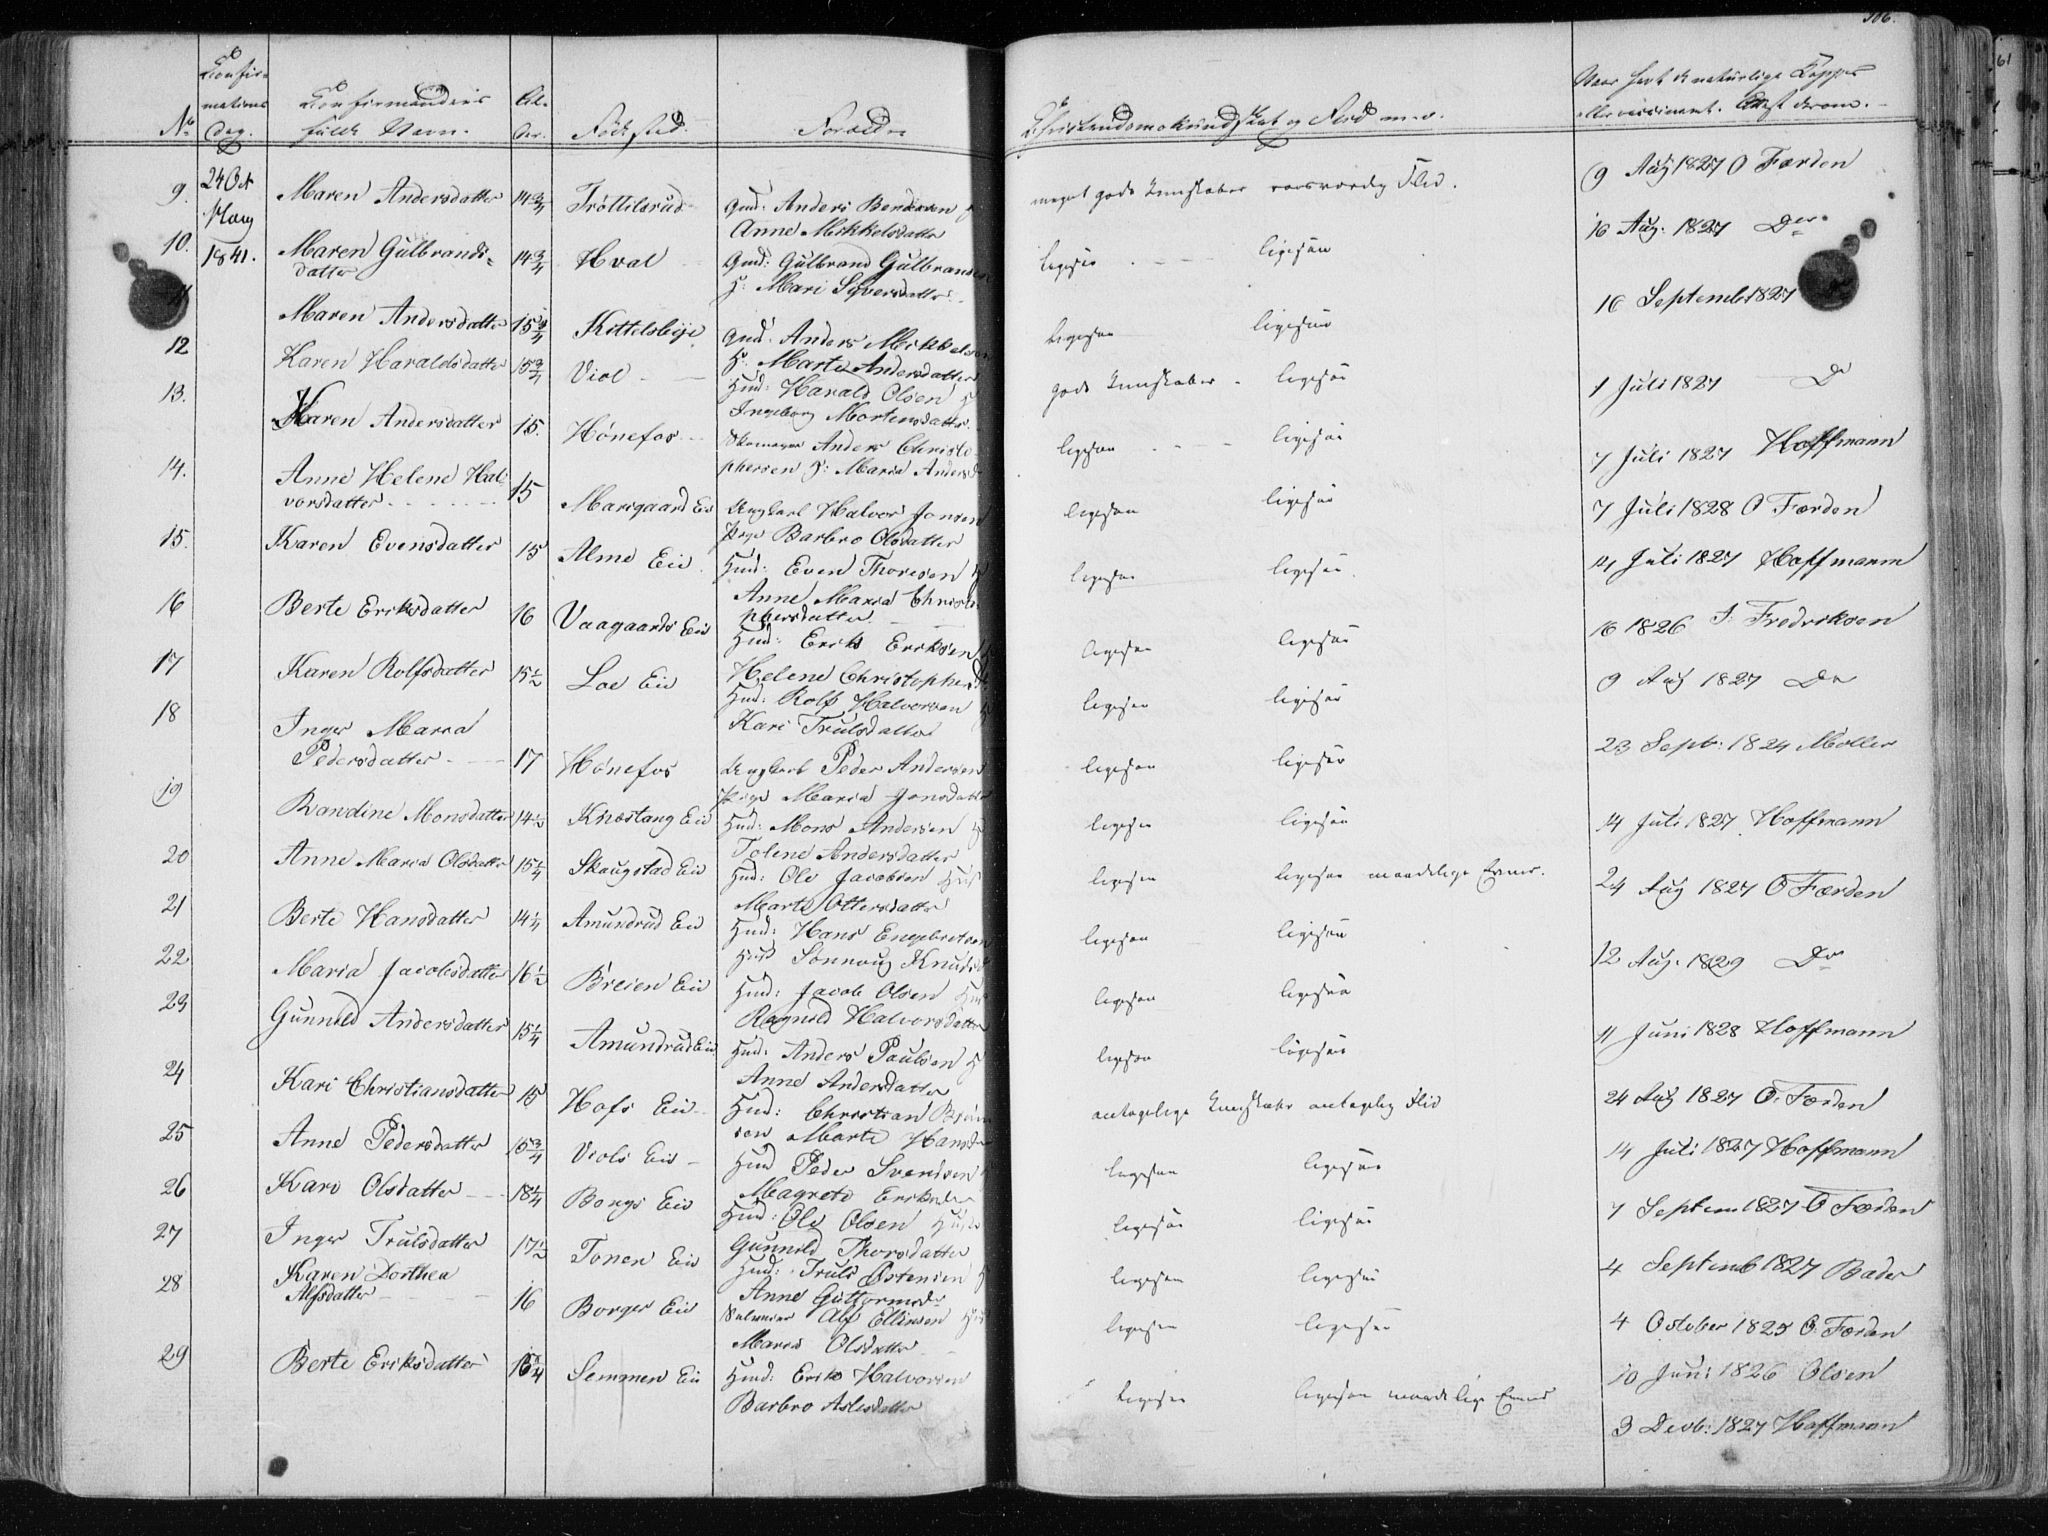 306.
61
No
Confir-
mations
Dag.
Confirmandens
fulde Navn.
Al-
der.
Födested.
Forældre
Christendomskundskab og Flid m. v.
Naar havt de naturlige Kopper
eller vaccineret. Attest derom.
24 Oct
Norderhoug
1841.
9. Maren Andersdatter 14 3/4 Tröttilsrud Gmd: Anders Bendixen
Anne Mikkelsdatter meget gode Kundskaber roesværdig Flid. 9 Aug 1827 O Færden
10. Maren Gulbrands-
datter 14 3/4 Hval Gmd: Gulbrand Gulbrandsen
H: Mari Siversdatter ligesaa ligesaa 16 Aug. 1827 Do
11 Maren Andersdatter 15 3/4 Kittelsbye Gmd: Anders Mikkelsen
H: Marte Andersdatter ligesaa ligesaa 16 Septemb 1827
12 Karen Haraldsdatter 15 3/4 Viol Hmd: Harald Olsen H
Ingeborg Mortensdatter gode Kundskaber ligesaa 1 Juli 1827 Do
13. Karen Andersdatter 15. Hönefos Skomager Anders Christo
phersen H: Maria Andersd ligesaa ligesaa 7 Juli 1827 Hoffmann
14. Anne Helene Hal-
vorsdatter 15 Marigaard Eie Ungkarl Halvor Jonsen
Pige Barbro Olsdatter ligesaa ligesaa 7 Juli 1828 O Færden
15. Karen Evensdatter 15 Alme Eie Hmd: Even Thoresen H
Anne Maria Christo
phersdatter ligesaa ligesaa. 14 Juli 1827 Hoffmann
16 Berte Eriksdatter 16 Vaagaards Eie Hmd: Erik Eriksen H
Helene Christophersd ligesaa ligesaa 16 1826 J: Fredriksen
17 Karen Rolfsdatter 15 1/2 Loe Eie Hmd: Rolf Halvorsen H
Kari Trulsdatter ligesaa ligesaa 9 Aug 1827 Do
18 Inger Maria
Pedersdatter 17 Hönefos Ungkarl Peder Andersen
Pige Maria Jonsdatter ligesaa ligesaa 23 Septr: 1824 Möller
19 Randine Monsdatter 14 1/2 Knæstang Eie Hmd: Mons Andersen H
Tolene Andersdatter ligesaa ligesaa 14 Juli 1827 Hoffmann
20 Anne Maria Olsdatter 15 1/4 Skaugstad Eie Hmd: Ole Jacobsen Hust
Marte Ottersdatter ligesaa ligesaa maadelige Evner. 24 Aug 1827 O Færden
21 Berte Hansdatter 14 1/4 Amundrud Eie Hmd: Hans Engebretsen
Hust Sönnoug Knudsd ligesaa ligesaa 12 Aug. 1829 Do
22 Maria Jacobsdatter 16 1/2 Breien Eie Hmd: Jacob Olsen Hust
Ragnild Halvorsdatter ligesaa ligesaa 11 Juni 1828 Hoffmann
23 Gunnild Andersdatter 15 1/4 Amundrud Eie Hmd: Anders Paulsen H
Anne Andersdatter ligesaa ligesaa 24 Aug 1827 O: Færden
24 Kari Christiansdatter 15 Hofs Eie Hmd: Christian
sen Marte Hansd antagelige Kundskaber antagelig Flid 14 Juli 1827 Hoffmann
25 Anne Pedersdatter 15 3/4 Viols Eie Hmd Peder Svendsen
Magrete Eriksd ligesaa ligesaa 7 Septem 1827 O Færden
26 Kari Olsdatter 18 1/4 Bongs Eie Hmd: Ole Olsen Hust
Gunnild Thorsdatter ligesaa ligesaa 4 Septemb 1827 Bader
27 Inger Trulsdatter 17 1/2 Tonen Eie Hmd: Truls Östensen H
Anne Guttormsdr ligesaa ligesaa 4 October 1825 O. Færden
28 Karen Dorthea
Alfsdatter 16 Borger Eie Alf Ellingsen
Maria Olsdatter ligesaa ligesaa 10 Juni 1826 Olsen
29 Berte Eriksdatter 15 1/4 Semmen Eie Hmd: Erik Halvorsen
Barbro Aslesdatter ligesaa ligesaa maadelige Evner 3 Decb: 1827 Hoffmann